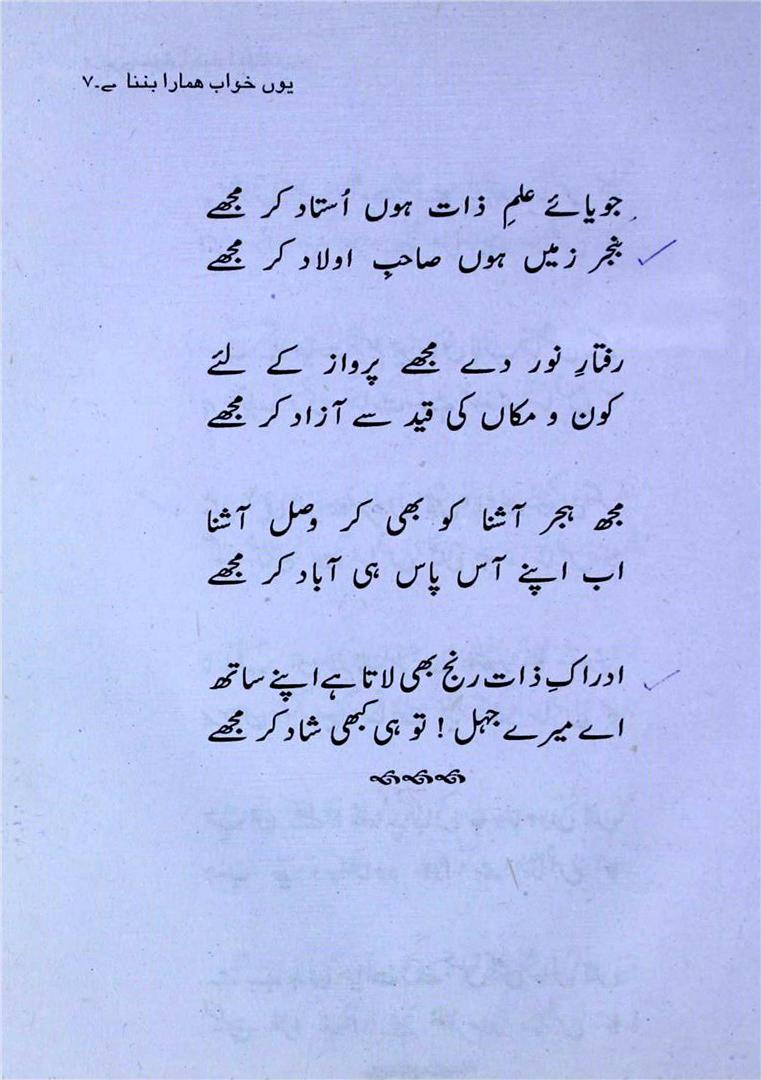 یوں خواب ہمارا بننا ہے۔۷
جویائے علمِ ذات ہوں اُستاد کر مجھے
بنجر زمیں ہوں صاحبِ اولاد کر مجھے
رفتارِ نور دے مجھے پرواز کے لئے
کون و مکاں کی قید سے آزاد کر مجھے
مجھ ہجر آشنا کو بھی کر وصل آشنا
اب اپنے آس پاس ہی آباد کر مجھے
ادراکِ ذات رنج بھی لاتا ہے اپنے ساتھ
اے میرے جہل ! تو ہی کبھی شاد کر مجھے